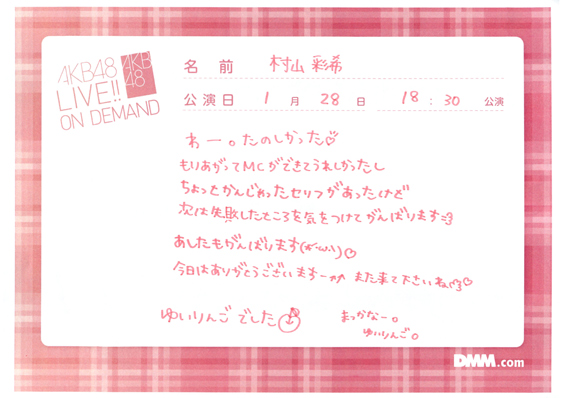 AKB48
LIVE!!
ON DEMAND
AKB
48
名 前 村山 彩希
公演日 1 月 28 日 18 : 30 公演
わー。たのしかった♡
もりあがってMCができてうれしかったし
ちょっとかんじゃったセリフがあったけど
次は失敗したところを気をつけてがんばります
あしたもがんばります(*'ω'*)♡
今日はありがとうございますー また来て下さいね♡
ゆいりんご でした
まっかなー。
ゆいりんご。
DMM.com